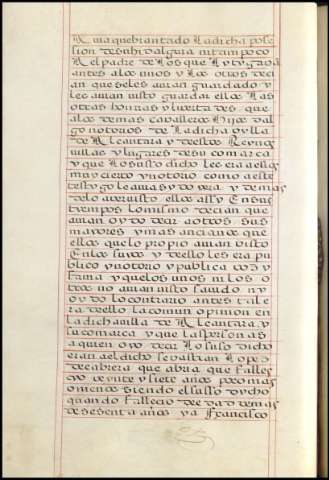 Avia quebrantado La dicha pose
sion de su hidalguia ni tampoco
A el padre de Los que Lytygaua
antes a los unos y Los otros deci
an que se les auian guardado y
les auian uisto guardar ellos Las
otras honrras y livertades que
a los demas caualleros Hijos dal
go notorios de La dicha uylla
de Alcantara y destos Reynos
uillas y lugares de su comarca
y que Lo susodicho les era a ellos
muy cierto y notorio como a este
testygo le auia sydo y era y demas
de lo aver uisto ellos assy En sus
tyempos Lo mismo decian que
auian oydo decir a otros sus
mayores y mas ancianos que
ellos que lo propio auian visto
En los suyos y de ello les era pu
blico y notoryo y publica voz y
fama y que los unos ni Los o
tros no auian uisto sauido ny
oydo lo contrario antes tal e
ra de ello La comun opinion en
La dicha uilla de Alcantara y
su comarca y que Las personas
a quien oyo decir Lo susodicho
eran a el dicho sevastian Lopez
de cabrera que abria que falles
cyo veynte y siete años poco mas
o menos siendo el susodycho
quando fallecio de edad de mas
de sesenta años y a Francisco